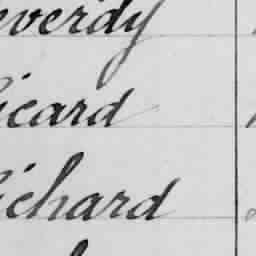 everdy
icard
ichard